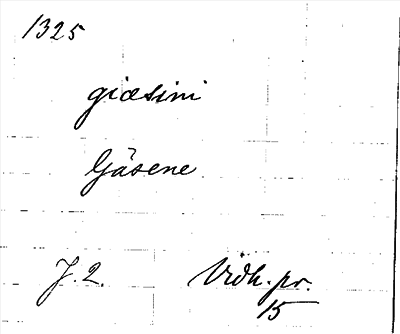 1325
giæsini
Gäsene
J. 2. Vidh. pr.
15